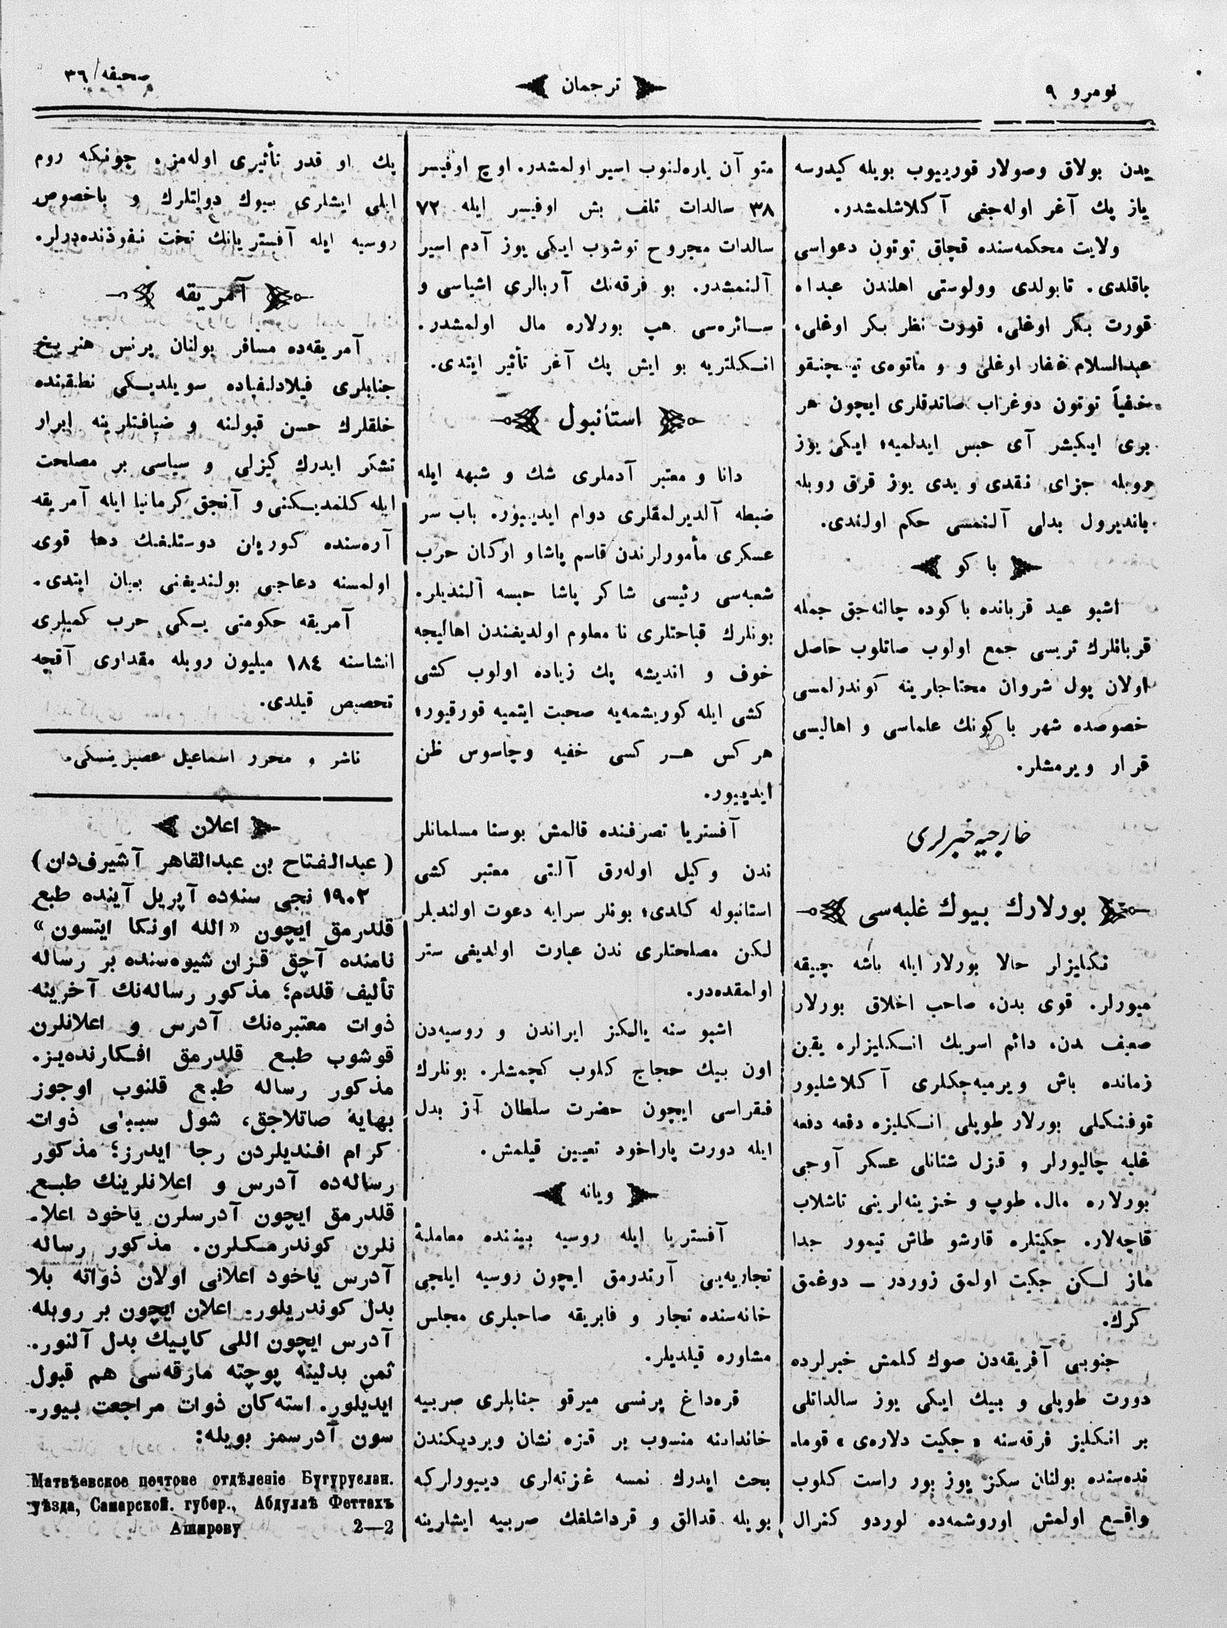 نومرو ٩
ترجمان
صحیفه/ ٣٦
یدن بولاق وصولار قورییوب بویله کیدرسه
یاز پك آغر اوله‌جغی آکلاشلمشدر.
ولایت محکمه‌سنده قچاق توتون دعواسی
باقلدی. تابولدی وولوستی اهلندن عبداه
قورت بکر اوغلی، قورت نظر بکر اوغلی،
عبدالسلام غفار اوغلی و و ماتوه‌ی تیـچنقو
خفیاً توتون دوغراب صاتدقلری ایچون هر
بری ایکیشر آی حبس ایدلمیه؛ ایکی یوز
روبله جزای نقدی و یدی یوز قرق روبله
باندیرول بدلی آلنمسی حکم اولندی.
باکو
اشبو عید قربانده باکوده چالنه‌جق جمله
قربانلرك تریسی جمع اولوب صاتلوب حاصل
اولان پول شروان محتاجارینه کوندرلمسی
خصوصده شهر باکونك علماسی و اهالیسی
قرار ویرمشلر.
خارجیه خبرلری
بورلارك بیوك غلبه‌سی
نکلیزلر حالا بورلار ایله باشه چیقه
میورلر. قوی بدن، صاحب اخلاق بورلار
ضعیف بدن، دائم اسریك انـکلیزلره یقین
زمانده باش ویرمیه‌جکلری آکلاشلیور
توفنکلی بورلار طوپلی انـکلیزه دفعه دفعه
غلبه چالیورلر و قزل شتانلی عسکر آوجی
بورلاره مال، طوپ و خزینه‌لرینی تاشلاب
قاچه‌لار. جکیتلره قارشو طاش تیمور جدا
ماز لـکن جکیت اولمق زوردر ــ دوغمق
کرك.
جنوبی آفریقه‌دن صوك کلمش خبرلرده
دورت طوپلی و بیك ایکی یوز سالداتلی
بر انکلیز فرقه‌سنه «جکیت دلاره‌ی» قوما۔
نده‌سنده بولنان سکز یوز بور راست کلوب
واقـع اولمش اوروشمه‌ده لوردو کنرال
متو آن یاره‌لنوب اسیر اولمشدر. اوچ اوفیسر
٣٨ سالدات تلف بش اوفیسر ایله ٧٢
سالدات مجروح توشوب ایکی یوز آدم اسیر
آلـنمشدر. بو فرقه‌نك آربالری اشیاسی و
سـائره‌سی هپ بورلاره مال اولمشدر.
انـکلتریه بو ایش پك آغر تأثیر ایتدی.
استانبول
دانا و معتبر آدملری شك و شبهه ایله
ضبطه آلدیرلمقلری دوام ایدییور. باب سر
عسکری مأمورلرندن قاسم پاشا و ارکان حرب
شعبه‌سی رئیسی شاکر پاشا حبسه آلندیلر.
بونلرك قباحتلری نا معلوم اولدیغندن اهالیجه
خوف و اندیشه پك زیاده اولوب کشی
کشی ایله کوریشمه‌یه صحبت ایتمیه قورقیور؛
هر کس هـر کسی خفیه وچاسوس ظن
ایدییور.
آفستریا تصرفنده قالمش بوسنا مسلمانلر
ندن وکیل اوله‌رق آلـتی معتبر کشی
استانبوله کلدی؛ بونلر سرایه دعوت اولندیلر
لـکن مصلحتلری ندن عبارت اولدیغی ستر
اولمقده‌در.
اشبو سنه یالـکز ایراندن و روسیه‌دن
اون بیك حجاج کلوب کچمشلر. بونلرك
فقراسی ایچون حضرت سلطان آز بدل
ایله دورت پاراخود تعیین قیلمش.
ویانه
آفستریا ایله روسیه بیننده معاملۀ
تجاریه‌یی آرتدرمق ایچون روسیه ایلچی
خانه‌سنده تجار و فابریقه صاحبلری مجلس
مشاوره قیلدیلر.
قره‌داغ پرنسی میرقو جنابلری صربیه
خاندانه منسوب بر قزه نشان ویردیکندن
بحث ایدرك نمسه غزته‌لری دییورلرکه
بویله قدالق و قرداشلغك صربیه ایشارینه
پك او قدر تأثیری اوله‌مز، چونکه روم
ایلی ایشلری بیوك دولتلرك و باخصوص
روسیه ایله آفستریانك تخت نفوذنده‌درلر.
آمریقه
آمریقه‌ده مسافر بولنان پرنس هنریخ
جنابلری فیلادلفیاده سویلدیـکی نطقنده
خلقلرك حسن قبولنه و ضیافتلرینه ابراز
تشکر ایدرك کیزلی و سیاسی بر مصلحت
ایله کلمدیـکنی و آنجق کرمانیا ایله آمریقه
آره‌سنده کوریان دوستلغـك دها قوی
اولمسنه دعاجی بولندیغنی بیان ایتدی.
آمریقه حکومتی یـکی حرب کمیلری
انشاسنه ١٨٤ میلیون روبله مقداری آقچه
تحصیص قیلدی.
ناشر و محرر اسماعیل غصپرینسکی.
اعلان
(عبدالفتاح بن عبدالقاهر آشیرف‌دان)
١٩٠٢ نجی سنه‌ده آپریل آینده طبع
قلدرمق ایچون «الله اونکا ایتسون»
نامنده آچق قزان شیوه‌سنده بر رساله
تألیف قلدم؛ مذکور رساله‌نك آخرینه
ذوات معتبره‌نك آدرس و اعلانلرن
قوشوب طبع قلدرمق افـکارنده‌یز.
مذکور رساله طبع قلنوب اوجوز
بهایه صاتلاجق، شول سببلی ذوات
کرام افندیلردن رجا ایدرز؛ مذکور
رساله‌ده آدرس و اعلانلرینك طبـع
قلدرمق ایچون آدرسلرن یاخود اعلا۔
نلرن کوندرمـکلرن. مذکور رساله
آدرس یاخود اعلانی اولان ذواته بلا
بدل کوندریلور. اعلان ایچون بر روبله
آدرس ایچون اللی کاپیك بدل آلنور.
ثمن بدلینه پوچته مارقه‌سی هم قبول
ایدیلور. استه‌کان ذوات مراجعت بیور۔
سون آدرسمز بویله:
Матвѣевское почтове отдѣленіе Бугуруслан.
уѣзда, Самарской. губер., Абдулаѣ Феттахъ
Аширову 2—2